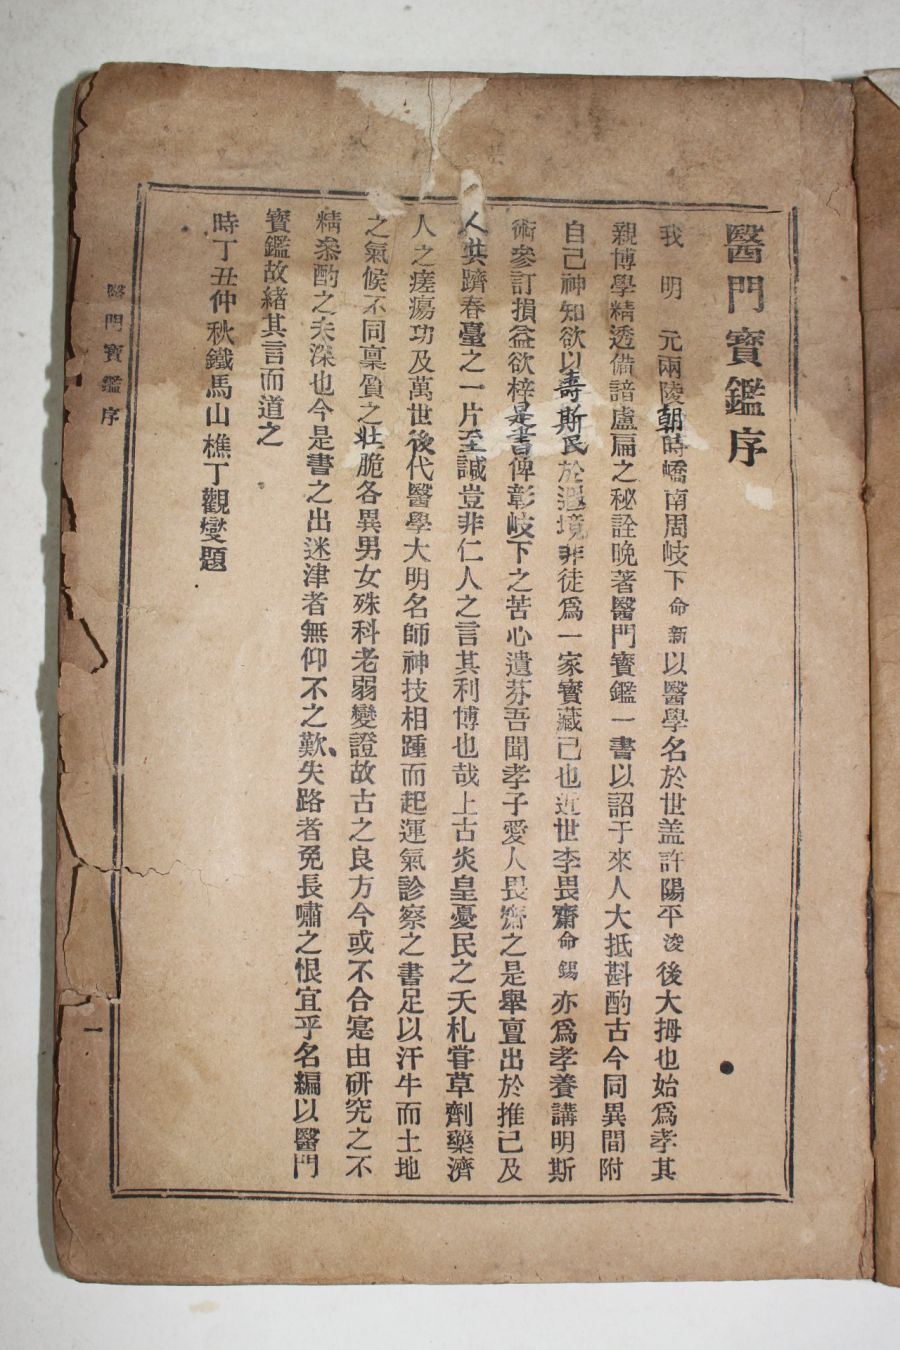 醫門寶鑑序
我 明 元兩陵朝時嶠南周岐下命新以醫學名於世盖許陽平浚後大拇也始爲孝其
親博學精透備諳盧扁之秘詮晩著醫門寶鑑一書以詔于來人大抵斟酌古今同異間附
自己神知欲以壽斯民於遐境非徒爲一家寶藏已也近世李畏齋命錫亦爲孝養講明斯
術參訂損益欲梓是書俾彰岐下之苦心遺芬吾聞孝子愛人畏齋之是舉亶出於推己及
人共躋春臺之一片至諴豈非仁人之言其利博也哉上古炎皇憂民之夭札甞草劑藥濟
人之瘥瘍功及萬世後代醫學大明名師神技相踵而起運氣診察之書足以汗牛而土地
之氣候不同稟質之壯脆各異男女殊科老弱變證故古之良方今或不合寔由研究之不
精叅酌之未深也今是書之出迷津者無仰不之歎失路者免長嘯之恨宜乎名編以醫門
寶鑑故緖其言而道之
時丁丑仲秋鐵馬山樵丁觀燮題
醫門寶鑑序
一